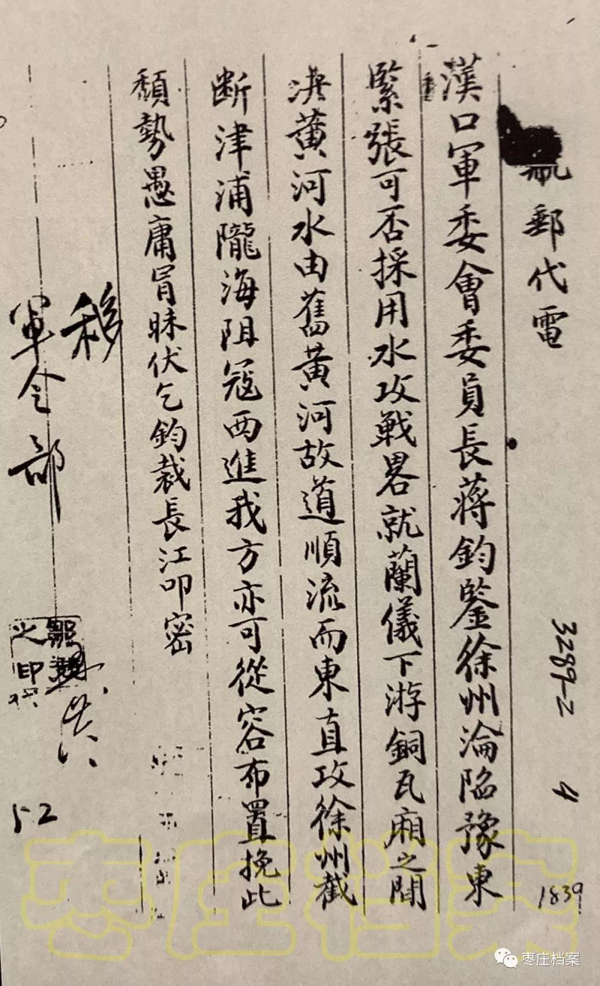 郵代電
漢口軍委會委員長蔣鈞鑒徐州淪陷豫東
緊張可否採用水攻戰畧就蘭儀下游銅瓦廂之間
决黄河水由舊黄河故道順流而東直攻徐州截
断津浦隴海阻寇西進我方亦可從容布置挽此
頹勢愚庸冒昧伏乞鈞裁長江叩密
移
軍令部
之印
52
3289-2 4
1839
枣庄档案
枣庄档案